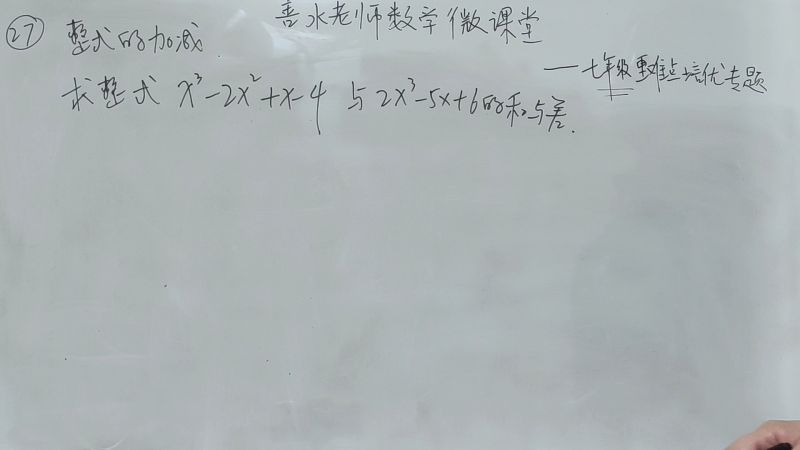 善水老师数学微课堂
㉗ 整式的加减
——七年级重难点培优专题
求整式 x³-2x²+x-4 与 2x³-5x+6的和与差.